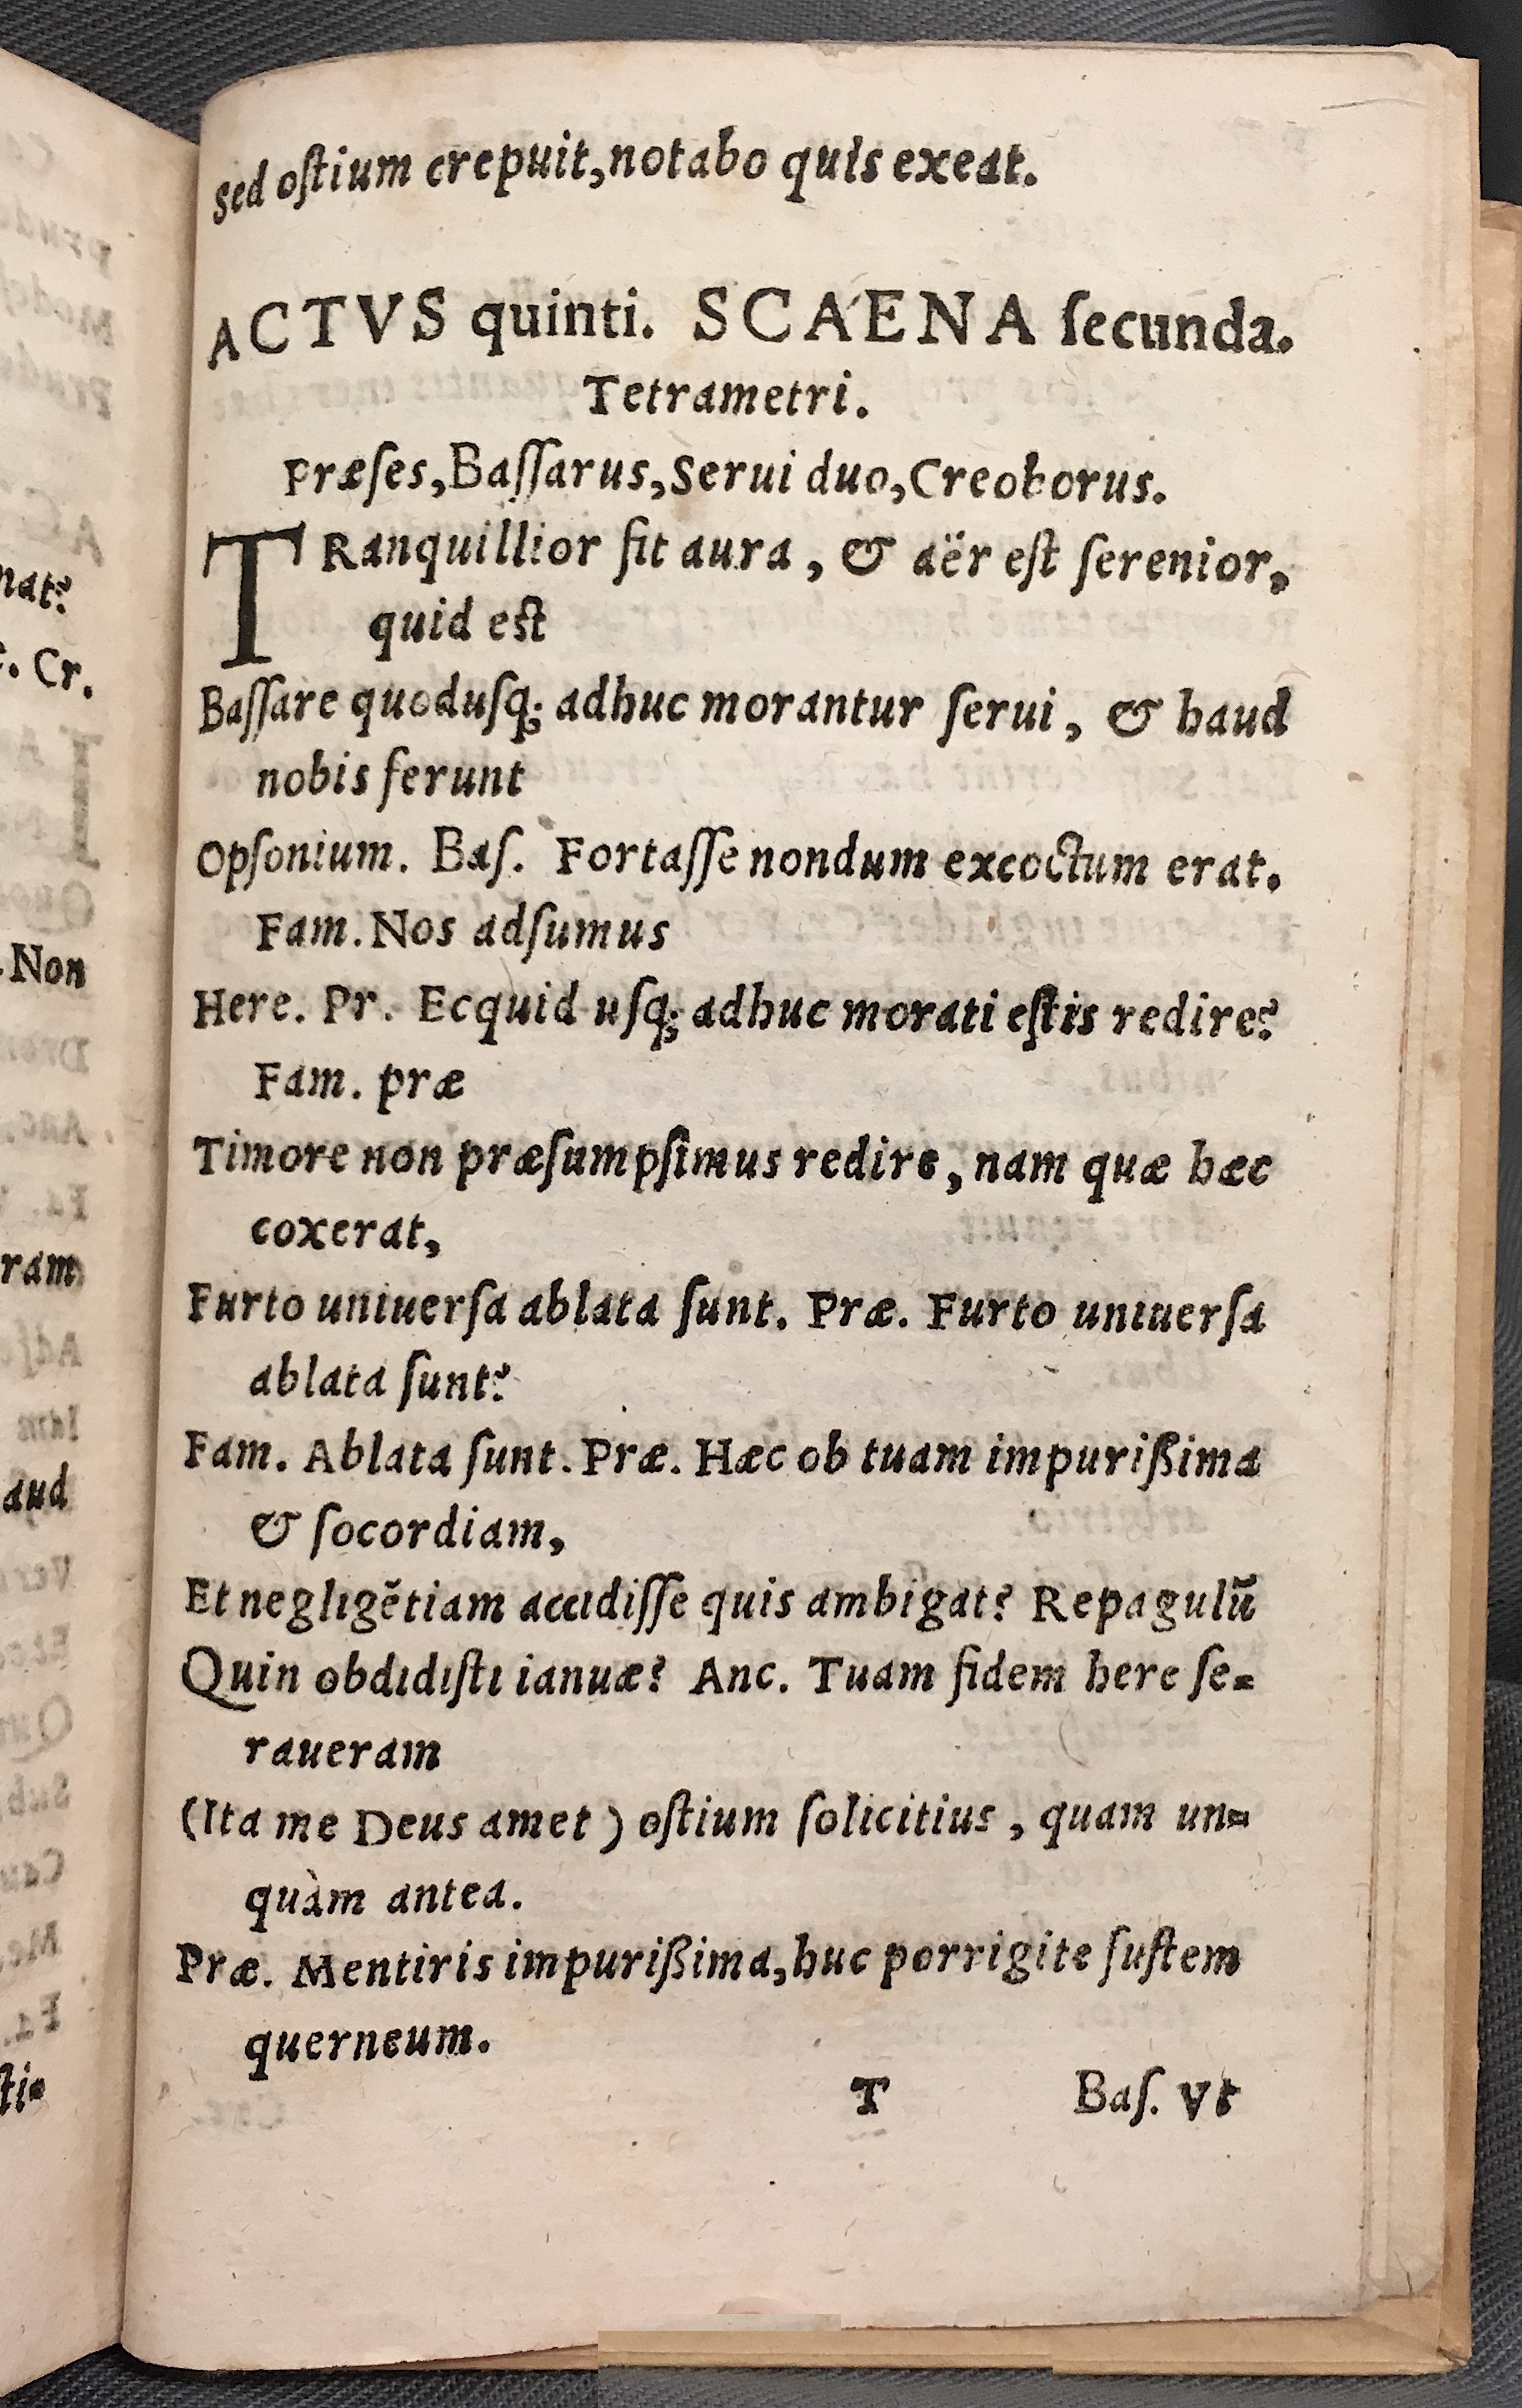 sed oſtium crepuit, notabo quis exeat.
ACTVS quinti. SCAENA ſecunda.
Tetrametri.
Præſes, Baſſarus, Serui duo, Creoborus.
TRanquillior fit aura, & aër eſt ſerenior,
quid eſt
Baſſare quodusq; adhuc morantur ſerui, & haud
nobis ferunt
Opſonium. Baſ. Fortaſſe nondum excoctum erat.
Fam. Nos adſumus
Here. Pr. Ecquid uſq; adhuc morati eſtis redire?
Fam. præ
Timore non præſumpſimus redire, nam quæ hæc
coxerat,
Furto uniuerſa ablata ſunt. Præ. Furto uniuerſa
ablata ſunt?
Fam. Ablata ſunt. Præ. Hæc ob tuam impurißima
& ſocordiam,
Et negligẽtiam accidiſſe quis ambigat? Repagulũ
Quin obdidiſti ianuæ? Anc. Tuam fidem here ſe=
raueram
(Ita me Deus amet) oſtium ſolicitius, quam un=
quàm antea.
Præ. Mentiris impurißima, huc porrigite fuſtem
querneum.
T Baſ. Vt
nat?
. Cr.
Non
ram
aud
ſti=